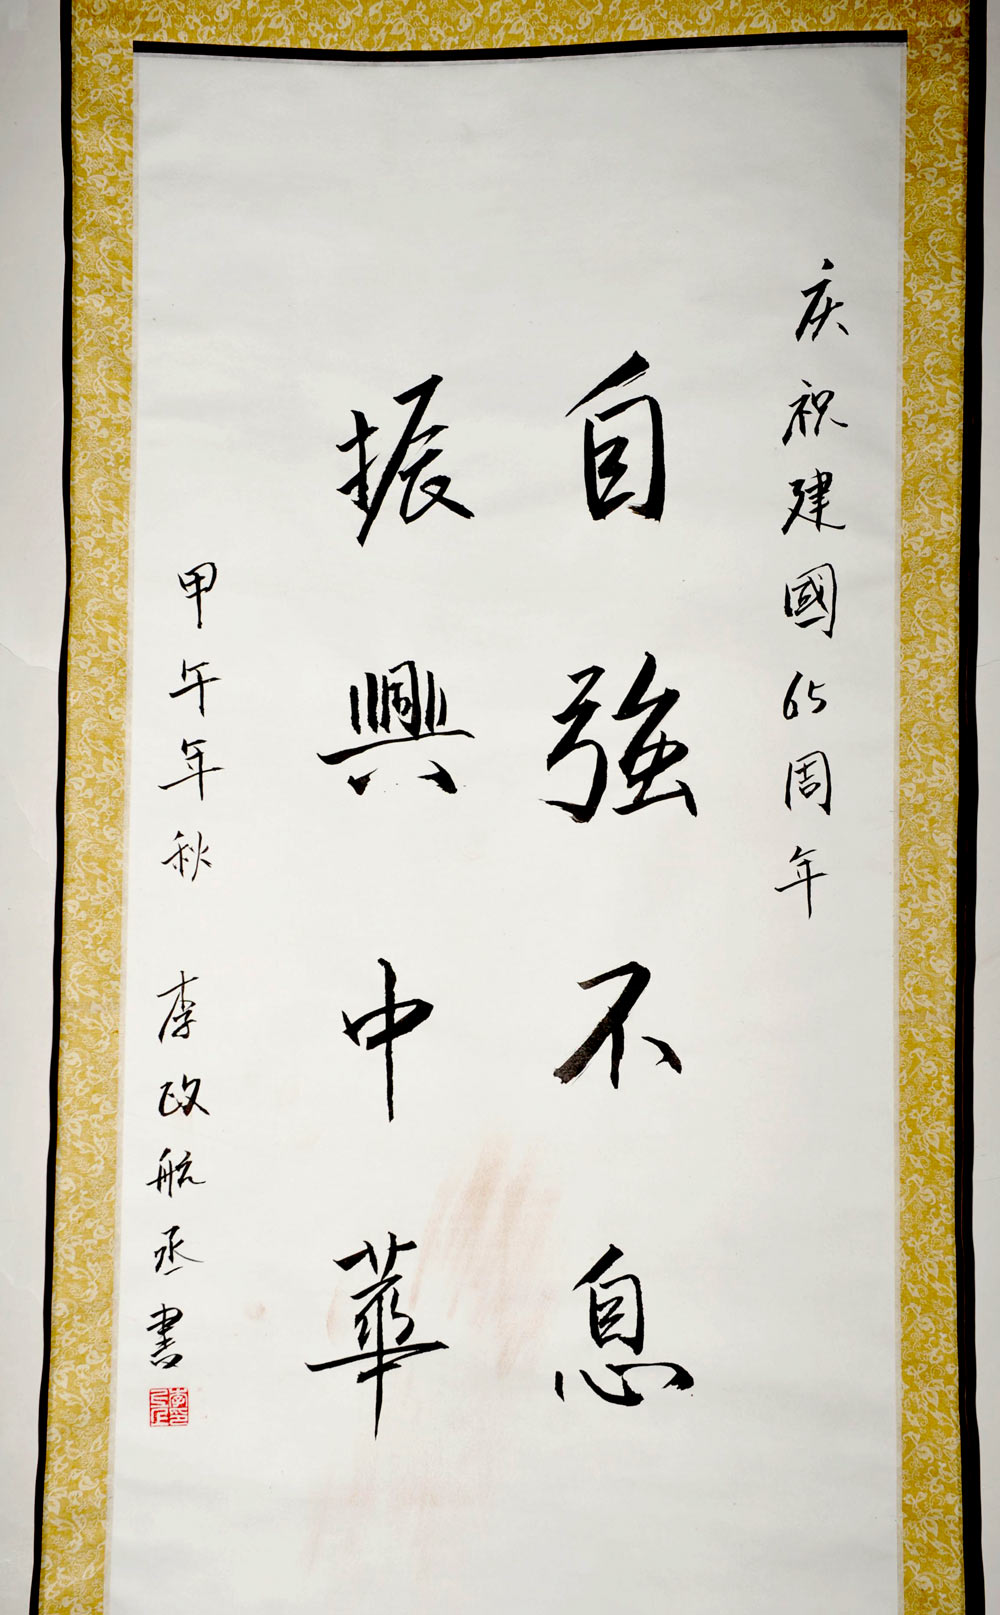 庆祝建國65周年
自強不息
振興中華
甲午年秋 李政航丞書